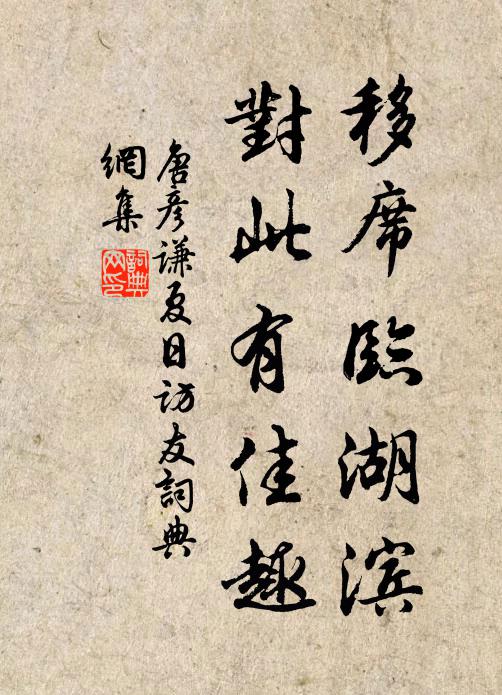 移席臨湖滨
對此有佳趣
唐彦谦夏日访友詞典
網集
詞典
网印